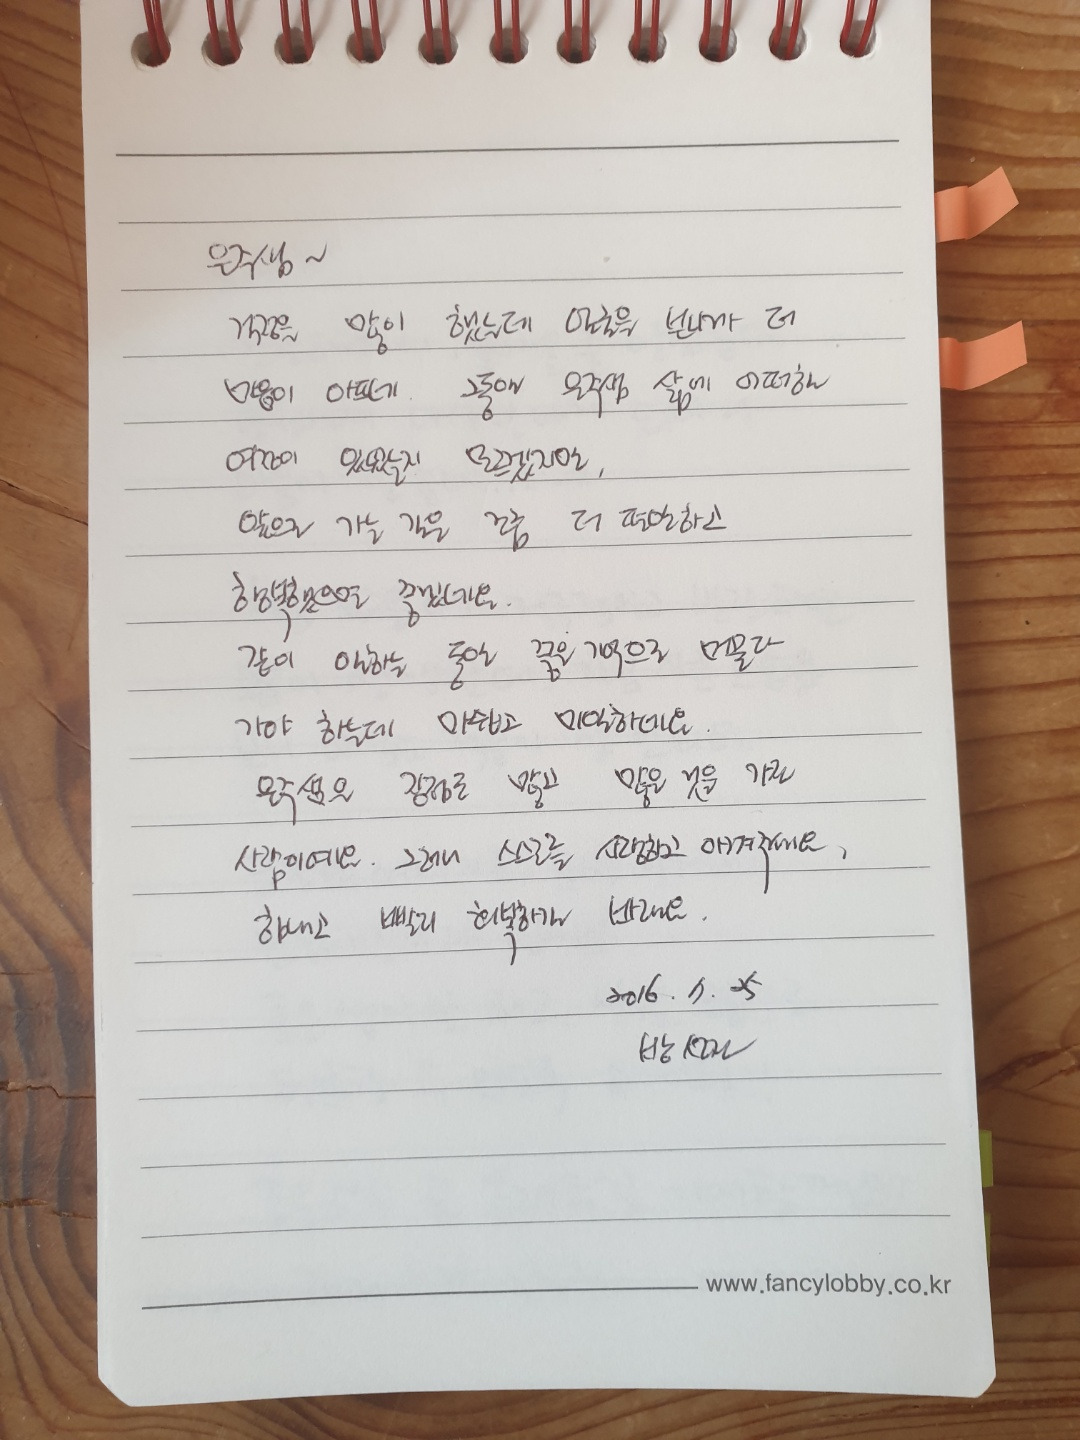 은주샘~
걱정을 많이 했는데 얼굴을 보니까 더
마음이 아프네. 그동안 은주샘 삶에 어떠한
여정이 있었는지 모르겠지만,
앞으로 가는 길은 조금 더 편안하고
행복했으면 좋겠네요.
같이 일하는 동안 좋은 기억으로 머물다
가야 하는데 아쉽고 미안하네요.
은주샘은 장점도 많고 많은 것을 가진
사람이예요. 그러니 스스로를 사랑하고 아껴주세요,
힘내고 빨리 회복하길 바래요.
2016. 1. 25
www.fancylobby.co.kr